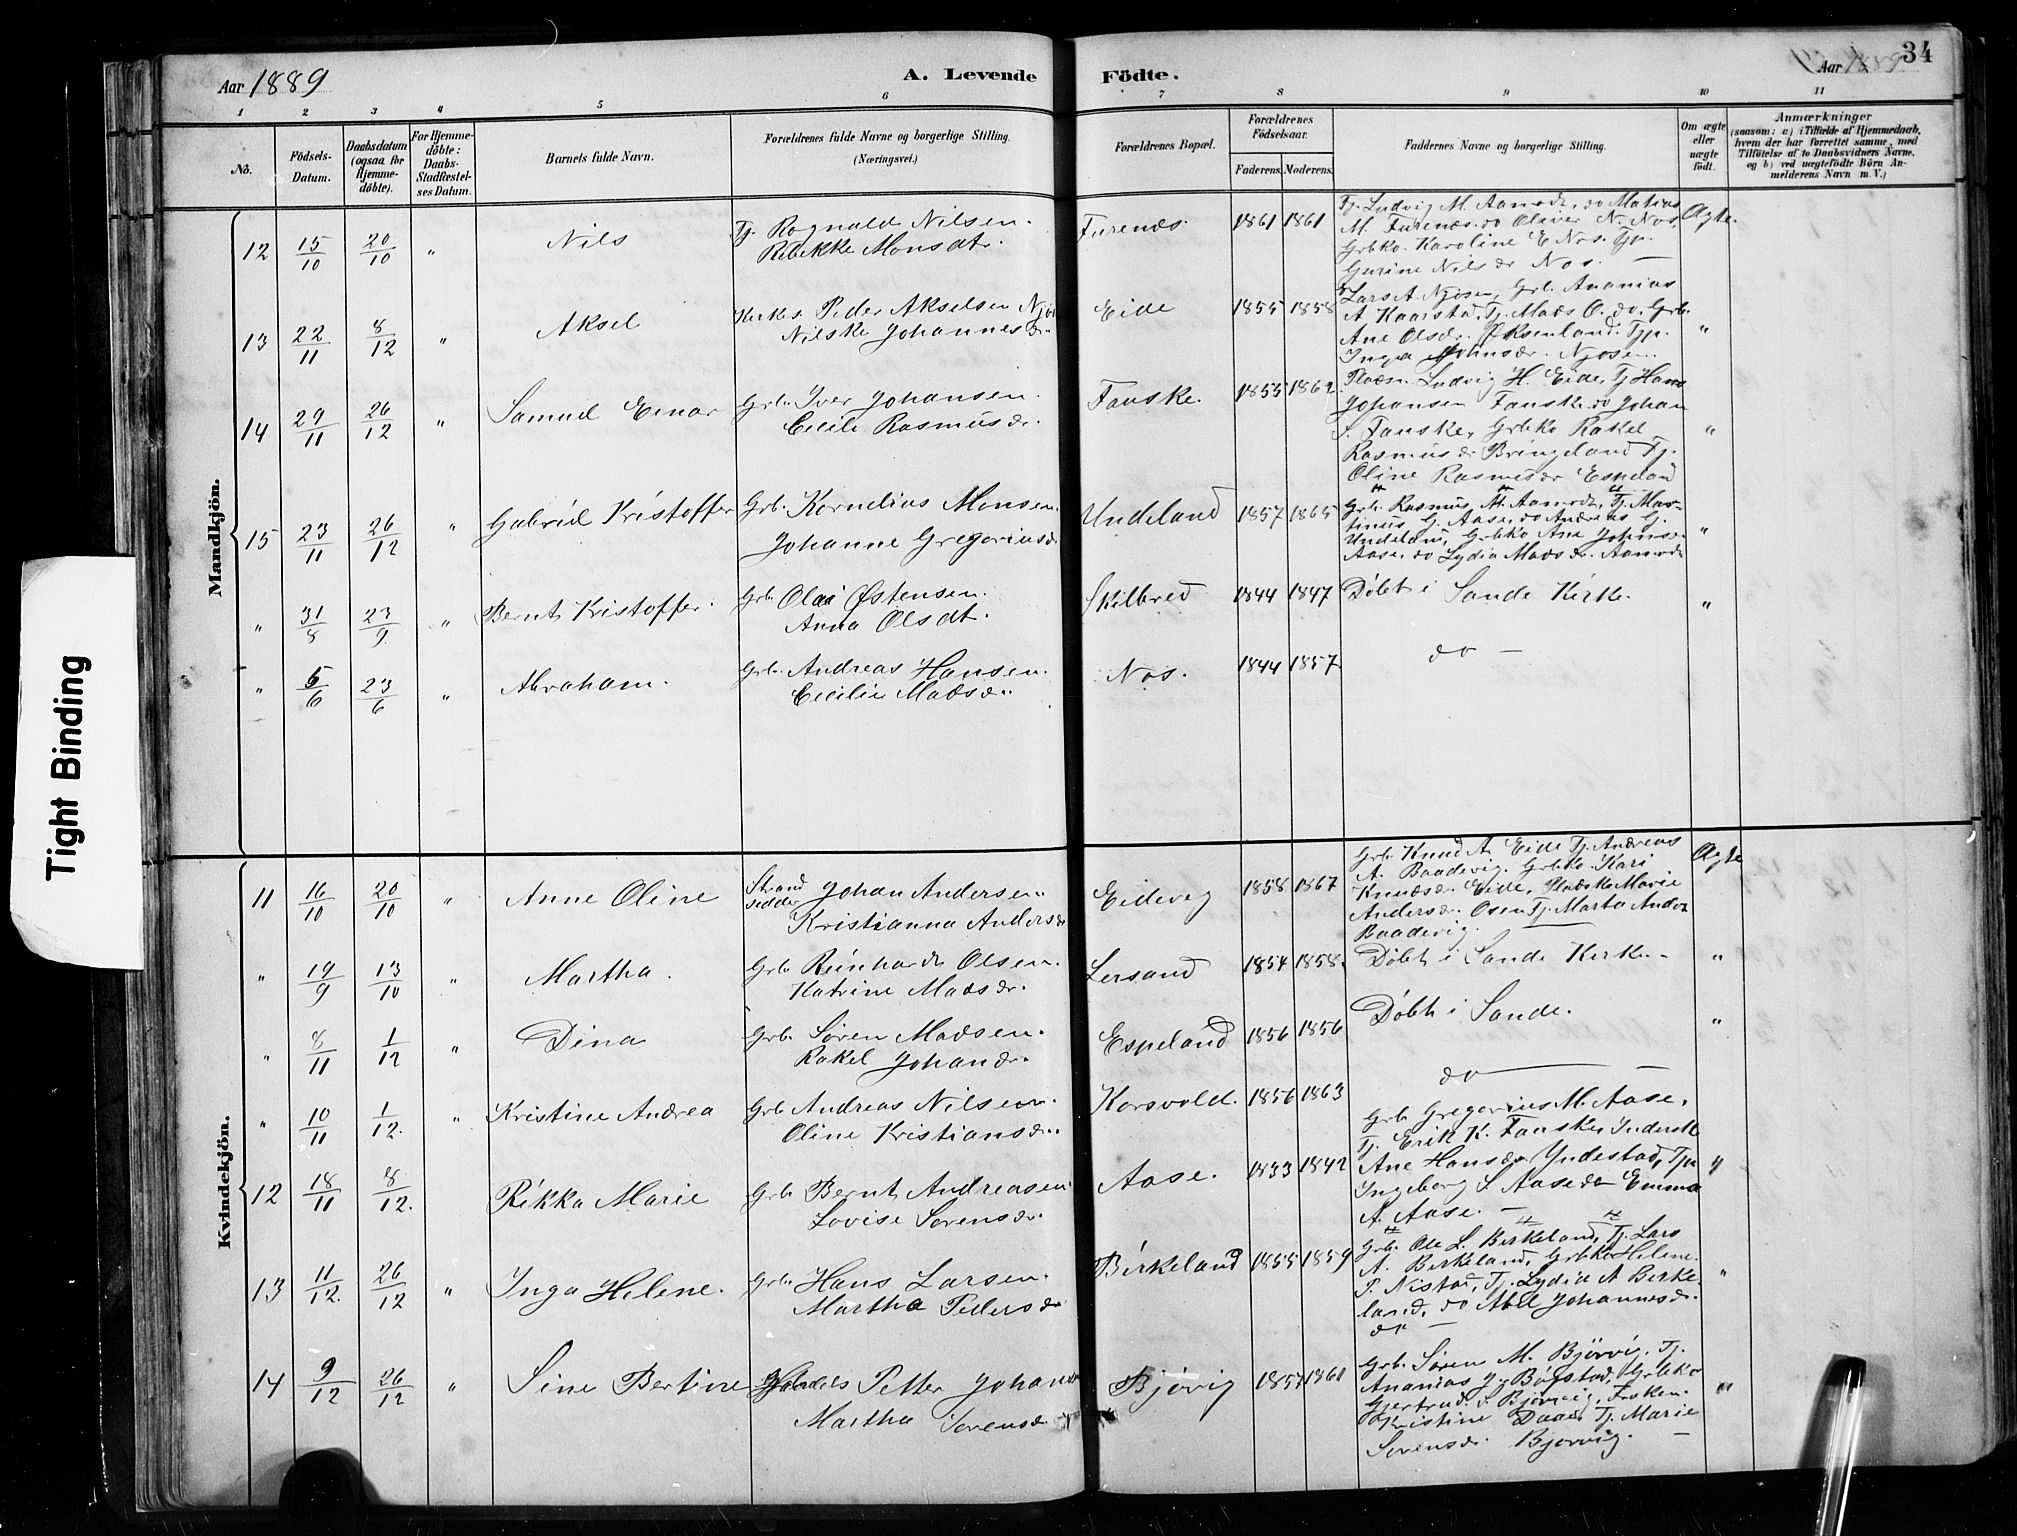 Aar 1889
A. Levende Födte.
Aar 1889
34
1 2 3 4 5 6 7 8 9 10 11
No.
Födsels-Datum.
Daabsdatum (ogsaa for Hjemme-döbte).
For Hjemme-döbte: Daabs-Stadfæstel-ses Datum.
Barnets fulde Navn.
Forældrenes fulde Navne og borgerlige Stilling. (Næringsvei.)
Forældrenes Bopæl.
Forældrenes Födselsaar.
Faderens. Moderens.
Faddernes Navne og borgerlige Stilling.
Om ægte eller uægte födt.
Anmærkninger (saasom: a) i Tilfælde af Hjemmedaab, hvem der har forrettet samme, med Tilföielse af to Daabsvidners Navne, og b) ved uægtefödte Börn An-melderens Navn m.V.)
Mandkjön.
12 15/10 20/10 " Nils
Tj. Rognald Nilsen.
Rebekke Monsdtr.
Furenæs. 1861 1861
Tj. Ludvig M. Aamodt, do Matias
M. Furenæs. do Oliver N. Nos,
Grbko. Karoline E. Nos. Tjp.
Gurine Nilsdr Nos. —
Ægte.
13 22/11 8/12 " Aksel
Kirkes. Peder Akselsen
Nilske Johannesdr.
Eide 1855 1858
Lars A. Njøsen, Grb. Ananias
A Kaarstad, Tj. Mads O. do, Grb.
Ane Olsdr. Øksenland. Tjp.
Inga Johnsdr. Njøsen.
"
14 29/11 26/12 " Samuel Einar
Grb. Iver Johansen.
Cecilie Rasmusdr.
Fauske. 1855 1862
Pladsm. Ludvig H. Eide, Tj Hans
Johansen Fauske. do Johan
S. Fauske, Grbko Rakel
Rasmusdr Bringeland Tj.
Oline Rasmusdr Espeland
"
15 23/11 26/12 " Gabriel Kristoffer
Grb. Kornelius Monsen.
Johanne Gregoriusdr
Undeland 1857 1865
Grb. Rasmus M. Aamodt, Tj. Mar-
tinus G. Aase, do Andreas G.
Undeland, Grbko Ane Johnsd.
Aase, do Lydia Madsdr. Aamodt
"
" 31/8 23/9 " Bernt Kristoffer.
Grb. Olai Østensen.
Anna Olsdt.
Skilbred 1844 1847 Døbt i Sande Kirke. "
" 5/6 23/6 " Abraham.
Grb. Andreas Hansen.
Cecilie Madsdr
Nos. 1844 1857 do —
Kvindekjön.
11 16/10 20/10 " Anne Oline
Strand sidder Johan Andersen
Kristianna Andersdr
Eidevig 1858 1867
Grb. Knud A. Eide Tj. Andreas
A. Baadevig. Grbko. Kari
Knudsdr. Eide, Pladsk Marie
Andersdr. Osen Tj. Marta Anders
Baadevig.
Ægte
" 19/9 13/10 " Martha.
Grb Reinhardt Olsen.
Katrine Madsdr.
Lersand 1854 1858. Døbt i Sande Kirke. "
" 8/11 1/12 " Dina
Grb. Søren Madsen.
Rakel Johandr.
Espeland 1856 1856 Døbt i Sande. "
" 10/11 1/12. " Kristine Andrea
Grb Andreas Nilsen.
Oline Kristiansdr.
Korsvold. 1856 1863 do —
12 18/11 8/12. " Rikka Marie
Grb. Bernt Andreasen
Lovise Sørensdr.
Aase. 1833 1842
Grb Gregorius M. Aase,
Tj. Erik K. Fauske, Inderstk
Ane Hansdr Yndestad, Tjp
Ingeborg S. Aase do Emma
A. Aase. —
"
13 11/12. 26/12 " Inga Helene.
Grb. Hans Larsen.
Martha Pedersdr
Birkeland 1855 1859
Grb. Ole L. Birkeland, Tj. Lars
A. Birkeland, Grbko Helene
P. Nistad, Tj. Lydia A Birke-
land, do Abel Johannesdr.
do —
"
14 9/12 26/12 " Sine Bertine
Petter Johan
Martha Sørensdr
Bjørvig 1857 1860
Grb. Søren M. Bjørvig, Tj.
Ananias J. Bøgstad, Grbko
Gjertrud S. Bjørvig, Frøken
Kristine Daae, Tj. Marie
Sørensdr. Bjørvig. —
"
Tight Binding